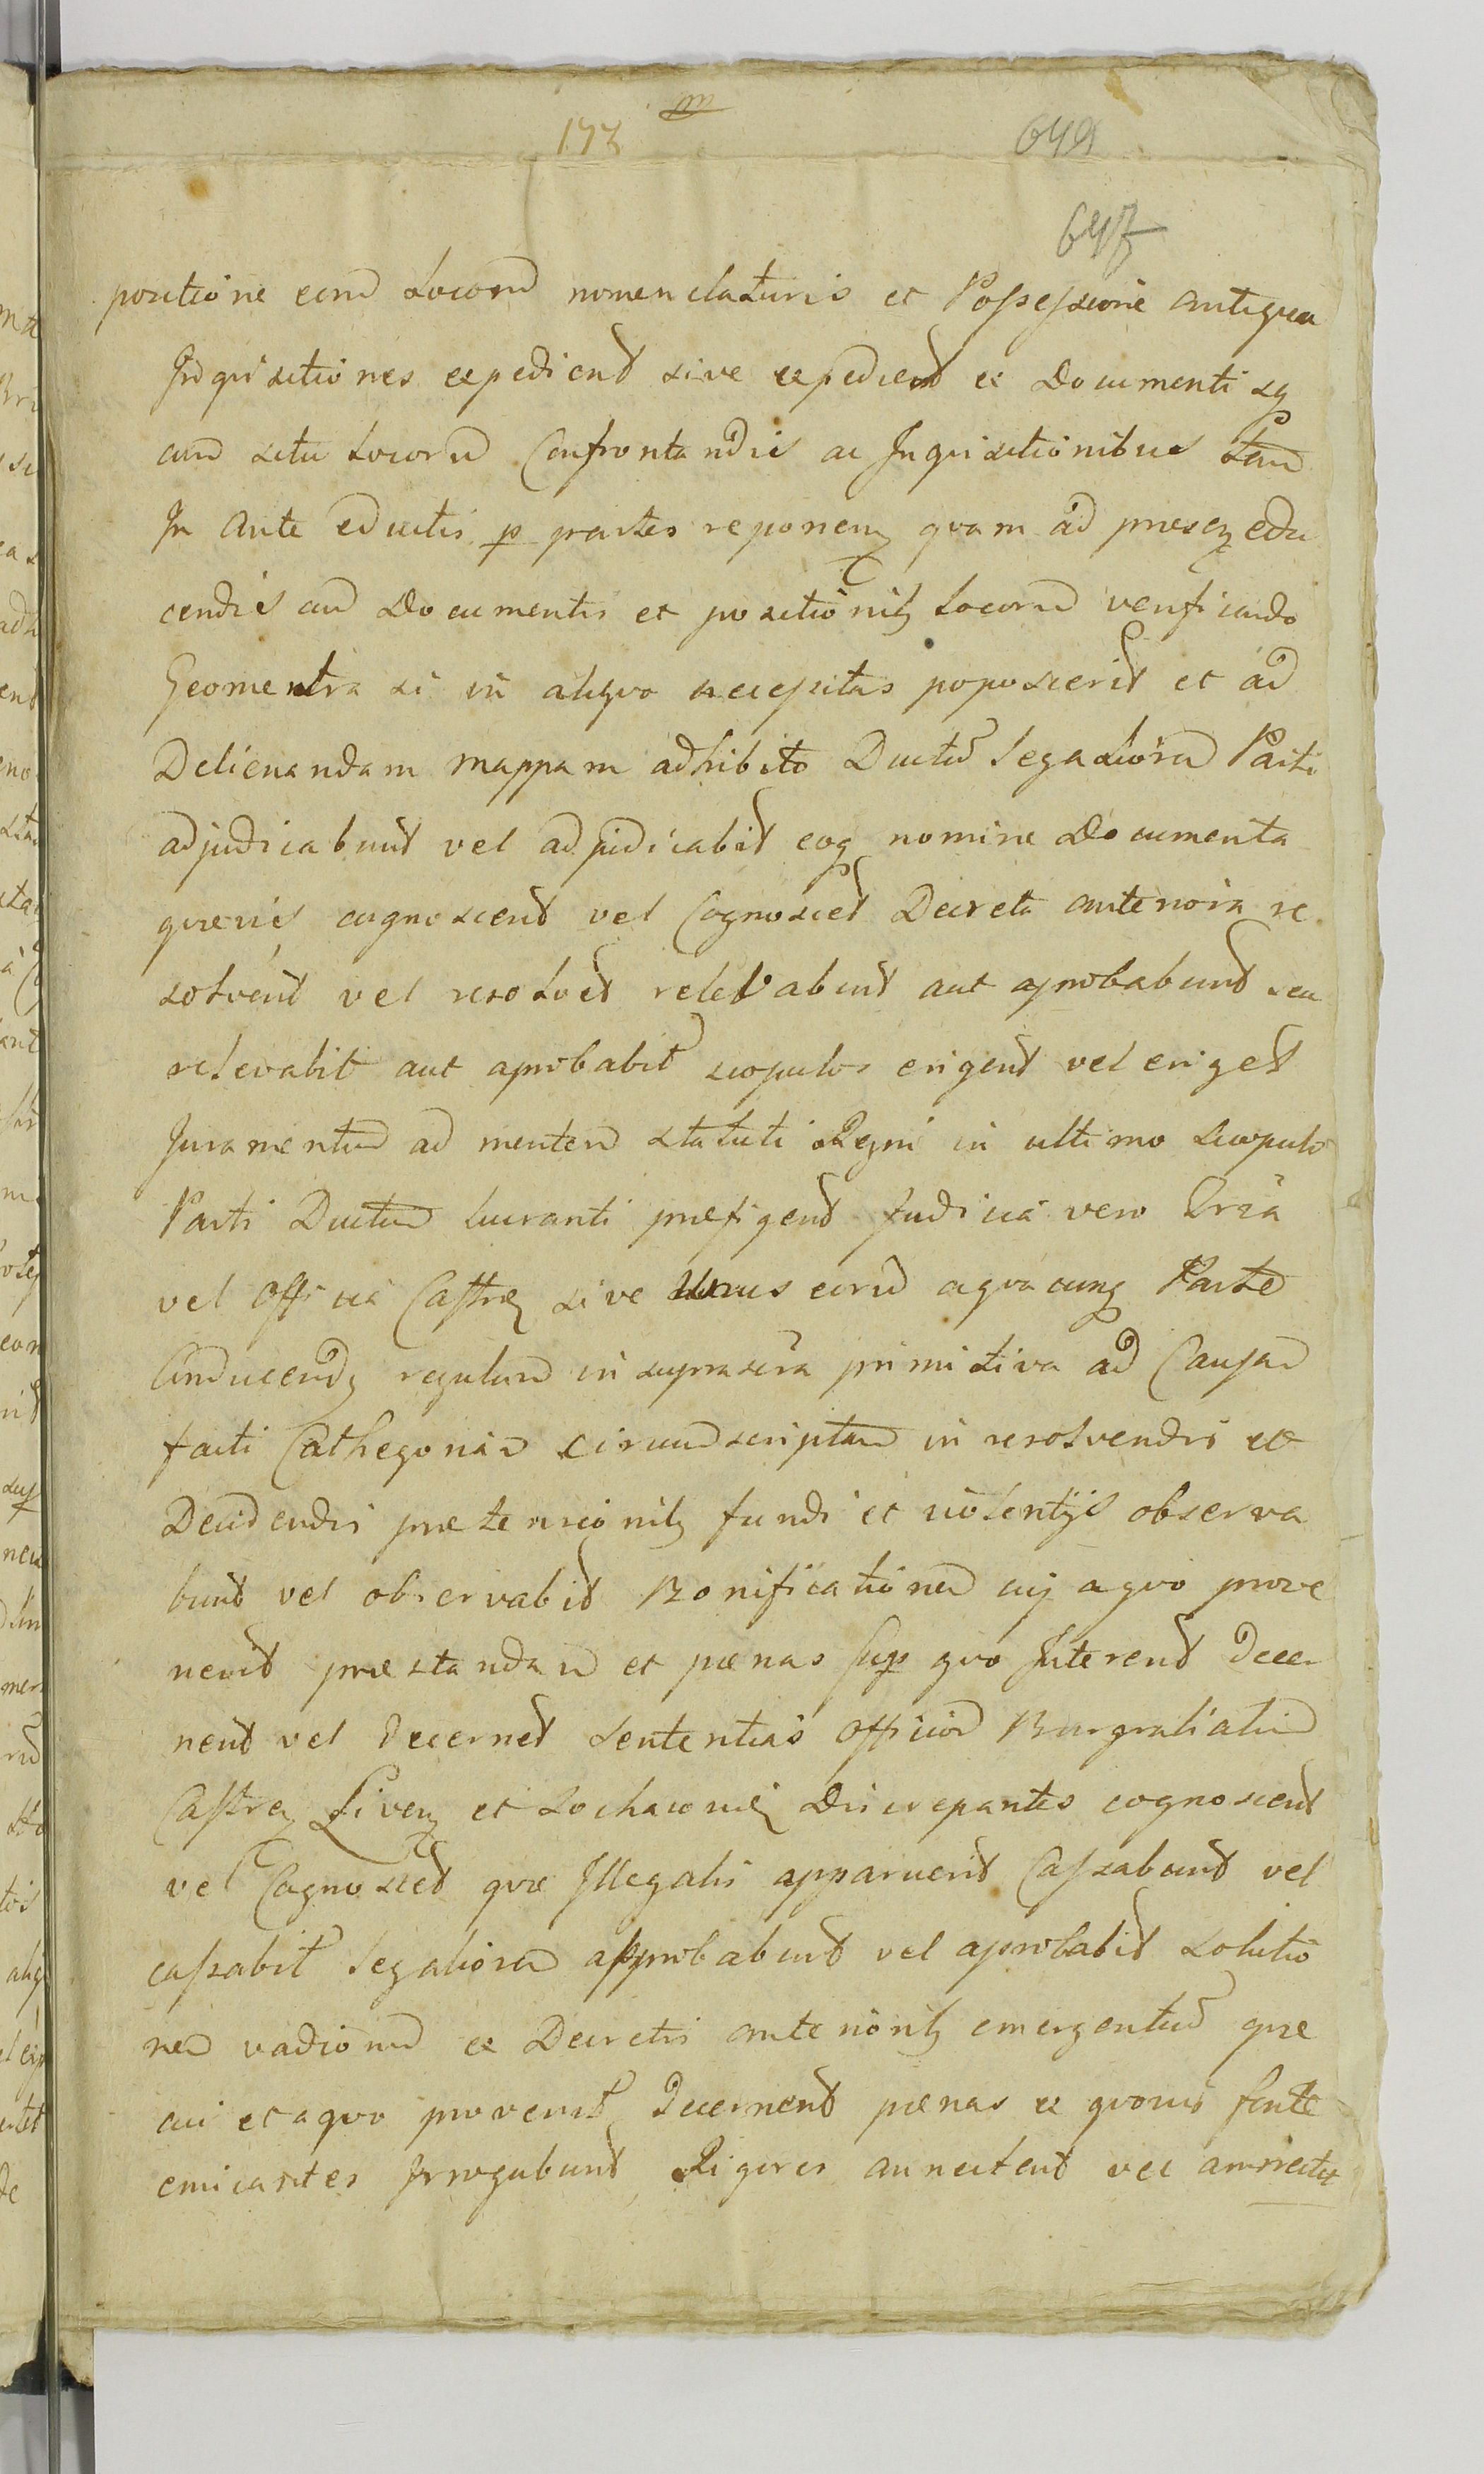 m
173
649
647
positione eorū Locorū nomenclaturis et Possessione antiqua
Inquisitiones expedient sive expediet ex Documentisq
cum situ Locorū Confrontandis ac Inquisitionibus tam
In Ante eductis p partes reponenz quam ad presenz edu
cendis cum Documentis et positionibz Locorū verificando
Geomentra si in aliquo necessitas poposcerit et ad
Delienandam mappam adhibito Ductū legaliorū Parti
adjudicabunt vel adjudicabit eoq nomine Documenta
quævis cognoscent vel Cognoscet Decreta anteriora re
solvent vel resolvet relevabunt aut aprobabunt seu
relevabit aut aprobabit scopulos erigent vel eriget
Juramentū ad mentem statuti Regni in ultimo scopulo
Parti Ductum lucranti prefigent Judicia vero Trria
vel Officia Castrenz sive Unus eorū aquacunq Parte
Conducendz regulam in suprascra primitiva ad Causam
facti Cathegoriam circumscriptam in resolvendis et
Decidendis prætensionibz fundi et violentijs observa
bunt vel observabit Bonificationem cuj aquo prove
nerit præstandam et pænas sup quo Interent decer
nent vel decernet sententias officior Burgrabialiū
Castren Livenz et Sochaczoviē Discrepantes cognoscent
vel Cognoscet quæ Illegalis apparuerit Cassabunt vel
cassabit legaliorem approbabunt vel aprobabit solutio
nem vadiorum ex Decretis anterioribz emergentiū quæ
cui et aquo provenit, decernent pænas ex quovis fonte
emicantes Irrogabunt, Rigores annectent vel annectet